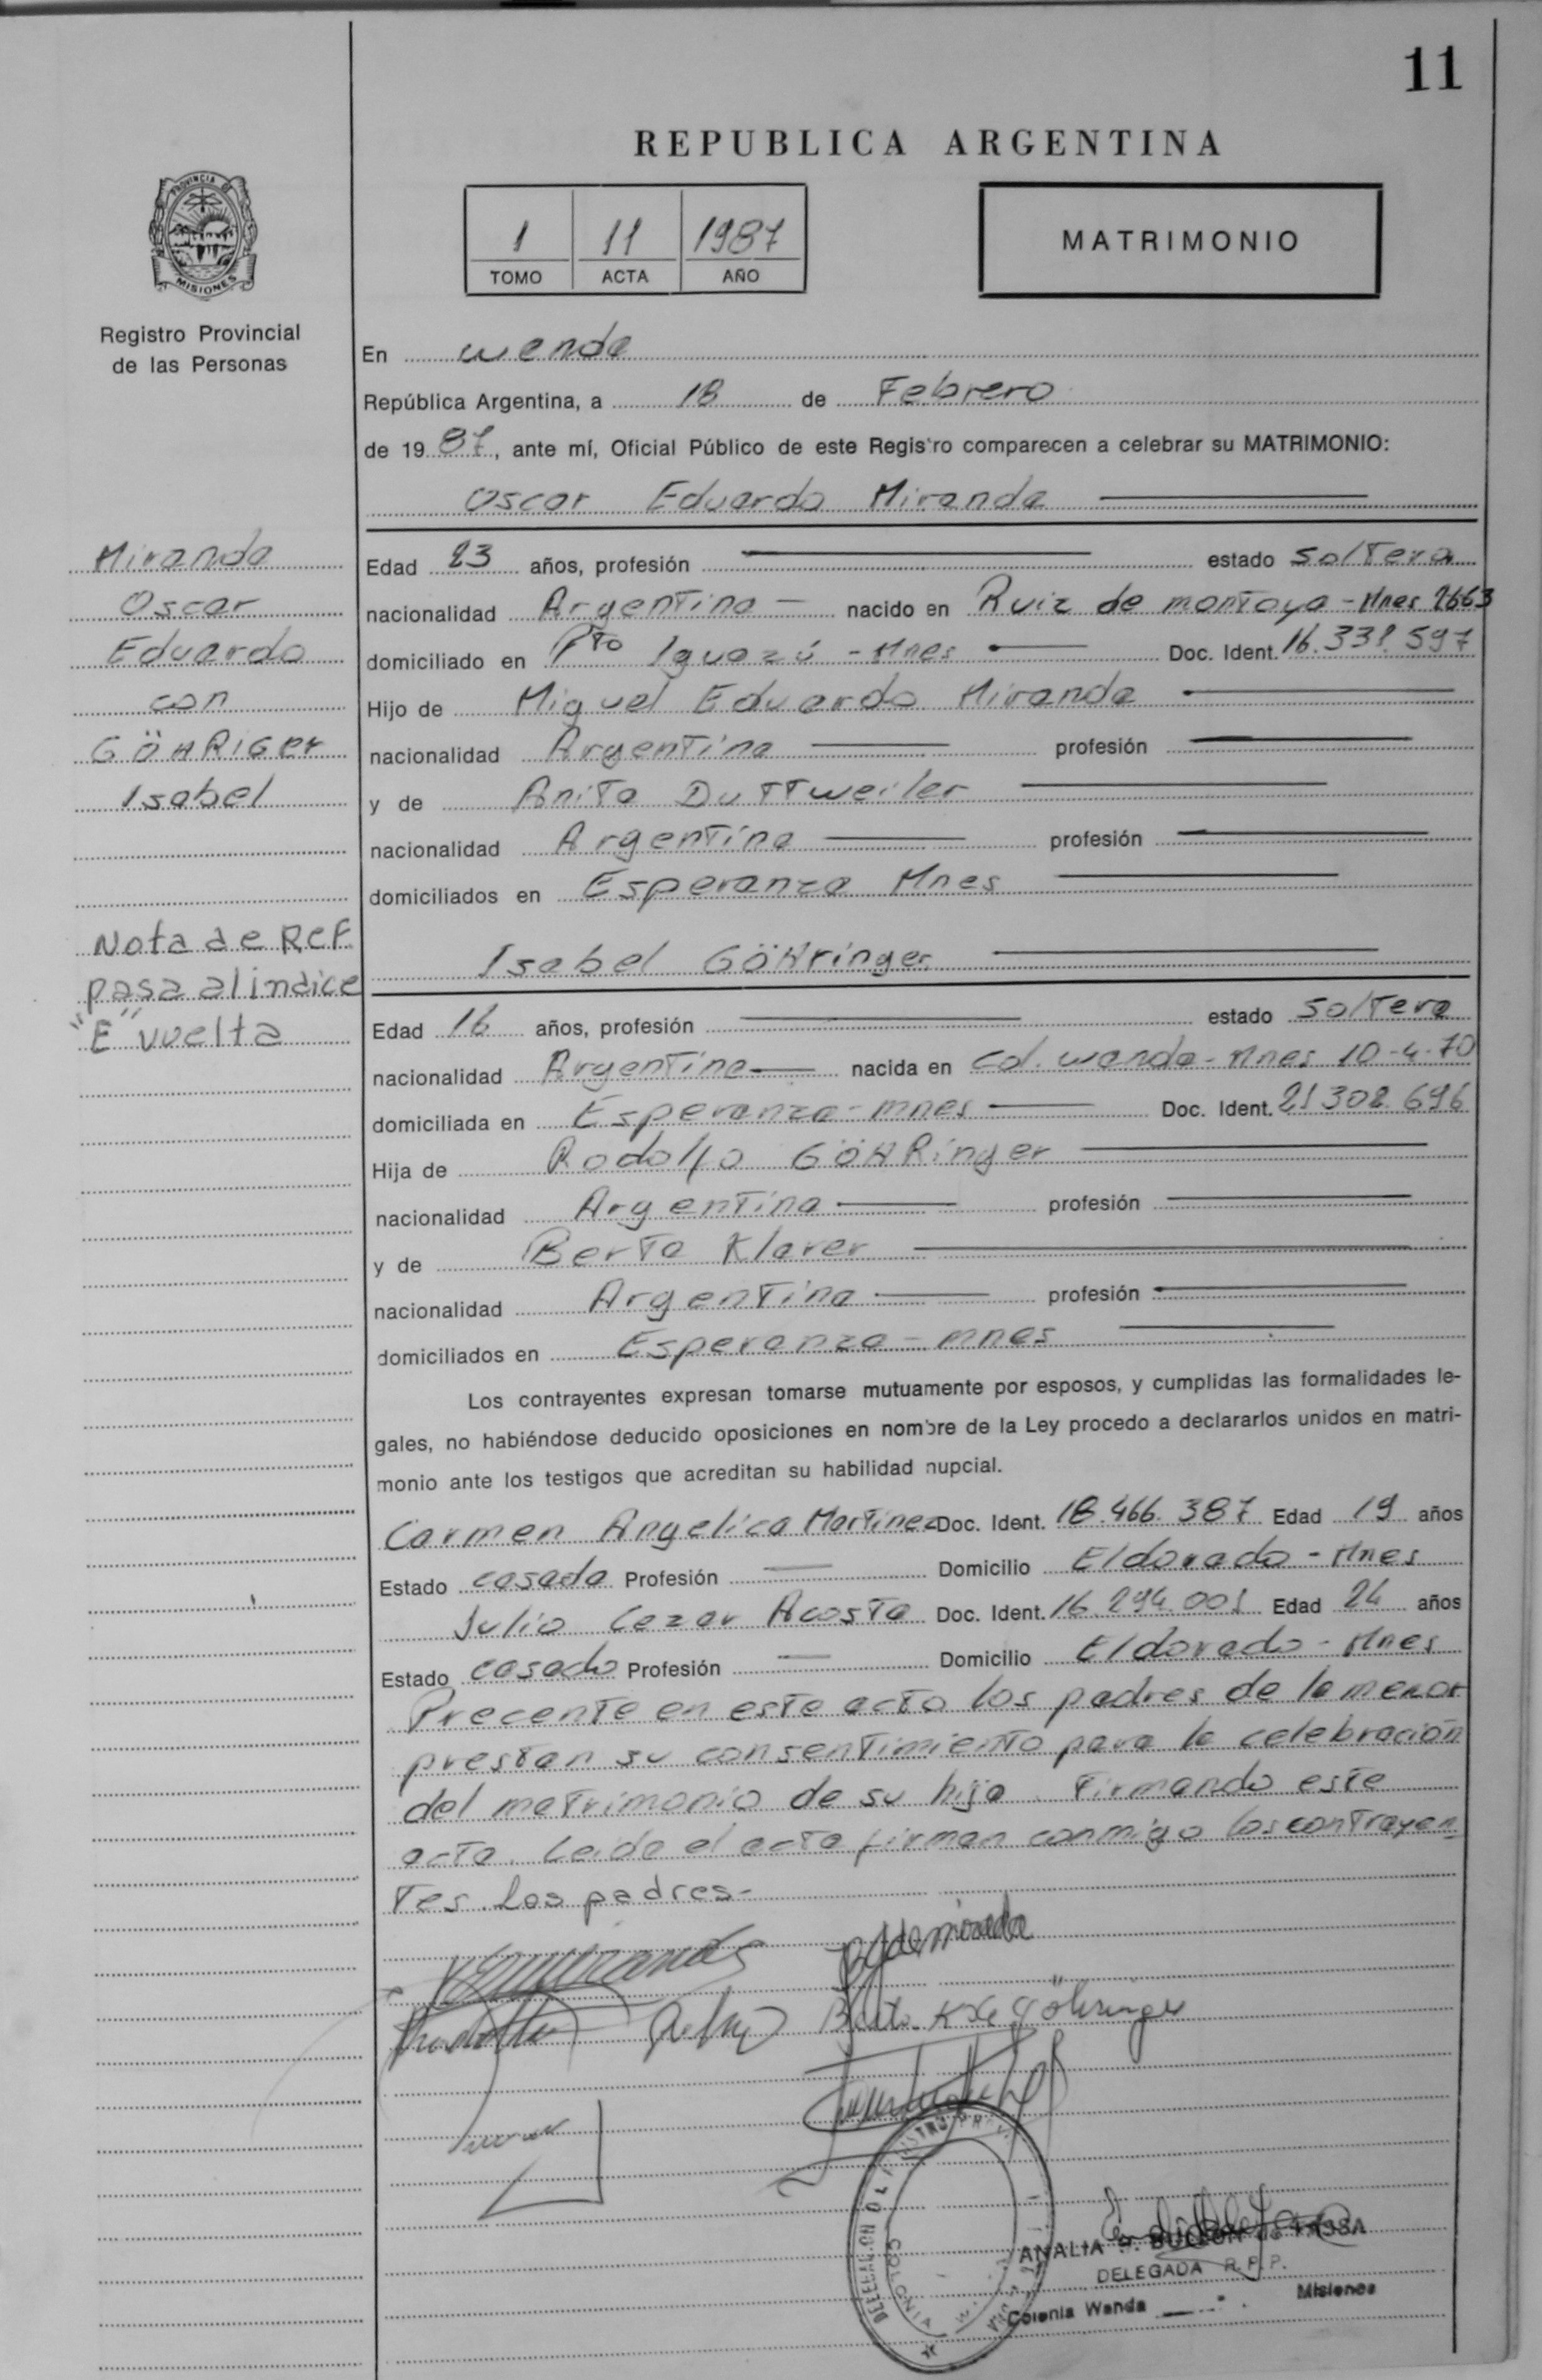 11
REPUBLICA ARGENTINA
1 11 1987
TOMO ACTA AÑO
MATRIMONIO
PROVINCIA DE
MISIONES
Registro Provincial
de las Personas
En wanda
República Argentina, a 18 de Febrero
de 19 87, ante mí, Oficial Público de este Registro comparecen a celebrar su MATRIMONIO:
Oscar Eduardo Miranda
Miranda
Oscar
Eduardo
con
GÖHRIGer
Isabel
Nota de Ref.
pasa al indice
"E" vuelta
Edad 23 años, profesión estado soltero
nacionalidad Argentina nacido en Ruiz de montoya - Mnes 2663
domiciliado en Pto Iguazú - Mnes Doc. Ident. 16.338.597
Hijo de Miguel Eduardo Miranda
nacionalidad Argentina profesión
y de Anita Duttweiler
nacionalidad Argentina profesión
domiciliados en Esperanza Mnes
Isabel GÖHringer
Edad 16 años, profesión estado soltera
nacionalidad Argentina nacida en Cd. wanda - Mnes 10-4-70
domiciliada en Esperanza - mnes Doc. Ident. 21 308 696
Hija de Rodolfo GÖHRinger
nacionalidad Argentina profesión
y de Berta Klarer
nacionalidad Argentina profesión
domiciliados en Esperanza - mnes
Los contrayentes expresan tomarse mutuamente por esposos, y cumplidas las formalidades le-
gales, no habiéndose deducido oposiciones en nombre de la Ley procedo a declararlos unidos en matri-
monio ante los testigos que acreditan su habilidad nupcial.
Carmen Angelica Martinez Doc. Ident. 18.466.387 Edad 19 años
Estado casada Profesión Domicilio Eldorado - Mnes
Julio Cezar Acosta Doc. Ident. 16.294.001 Edad 24 años
Estado casado Profesión Domicilio Eldorado - Mnes
Precente en este acto los padres de la menor
prestan su consentimiento para la celebración
del matrimonio de su hija. Firmando este
acta. Leida el acta firman conmigo los contrayen
tes. Los padres-
Berta K de göhringer
ANALIA
DELEGADA R.P.P.
Colonia Wanda Misiones